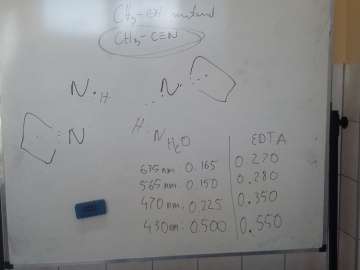 CH3-CEN
N·H
N
N
H N
H2O EDTA
635nm·0.165 0.270
565nm·0.150 0.280
470nm·0.225 0.350
430nm·0.500 0.550